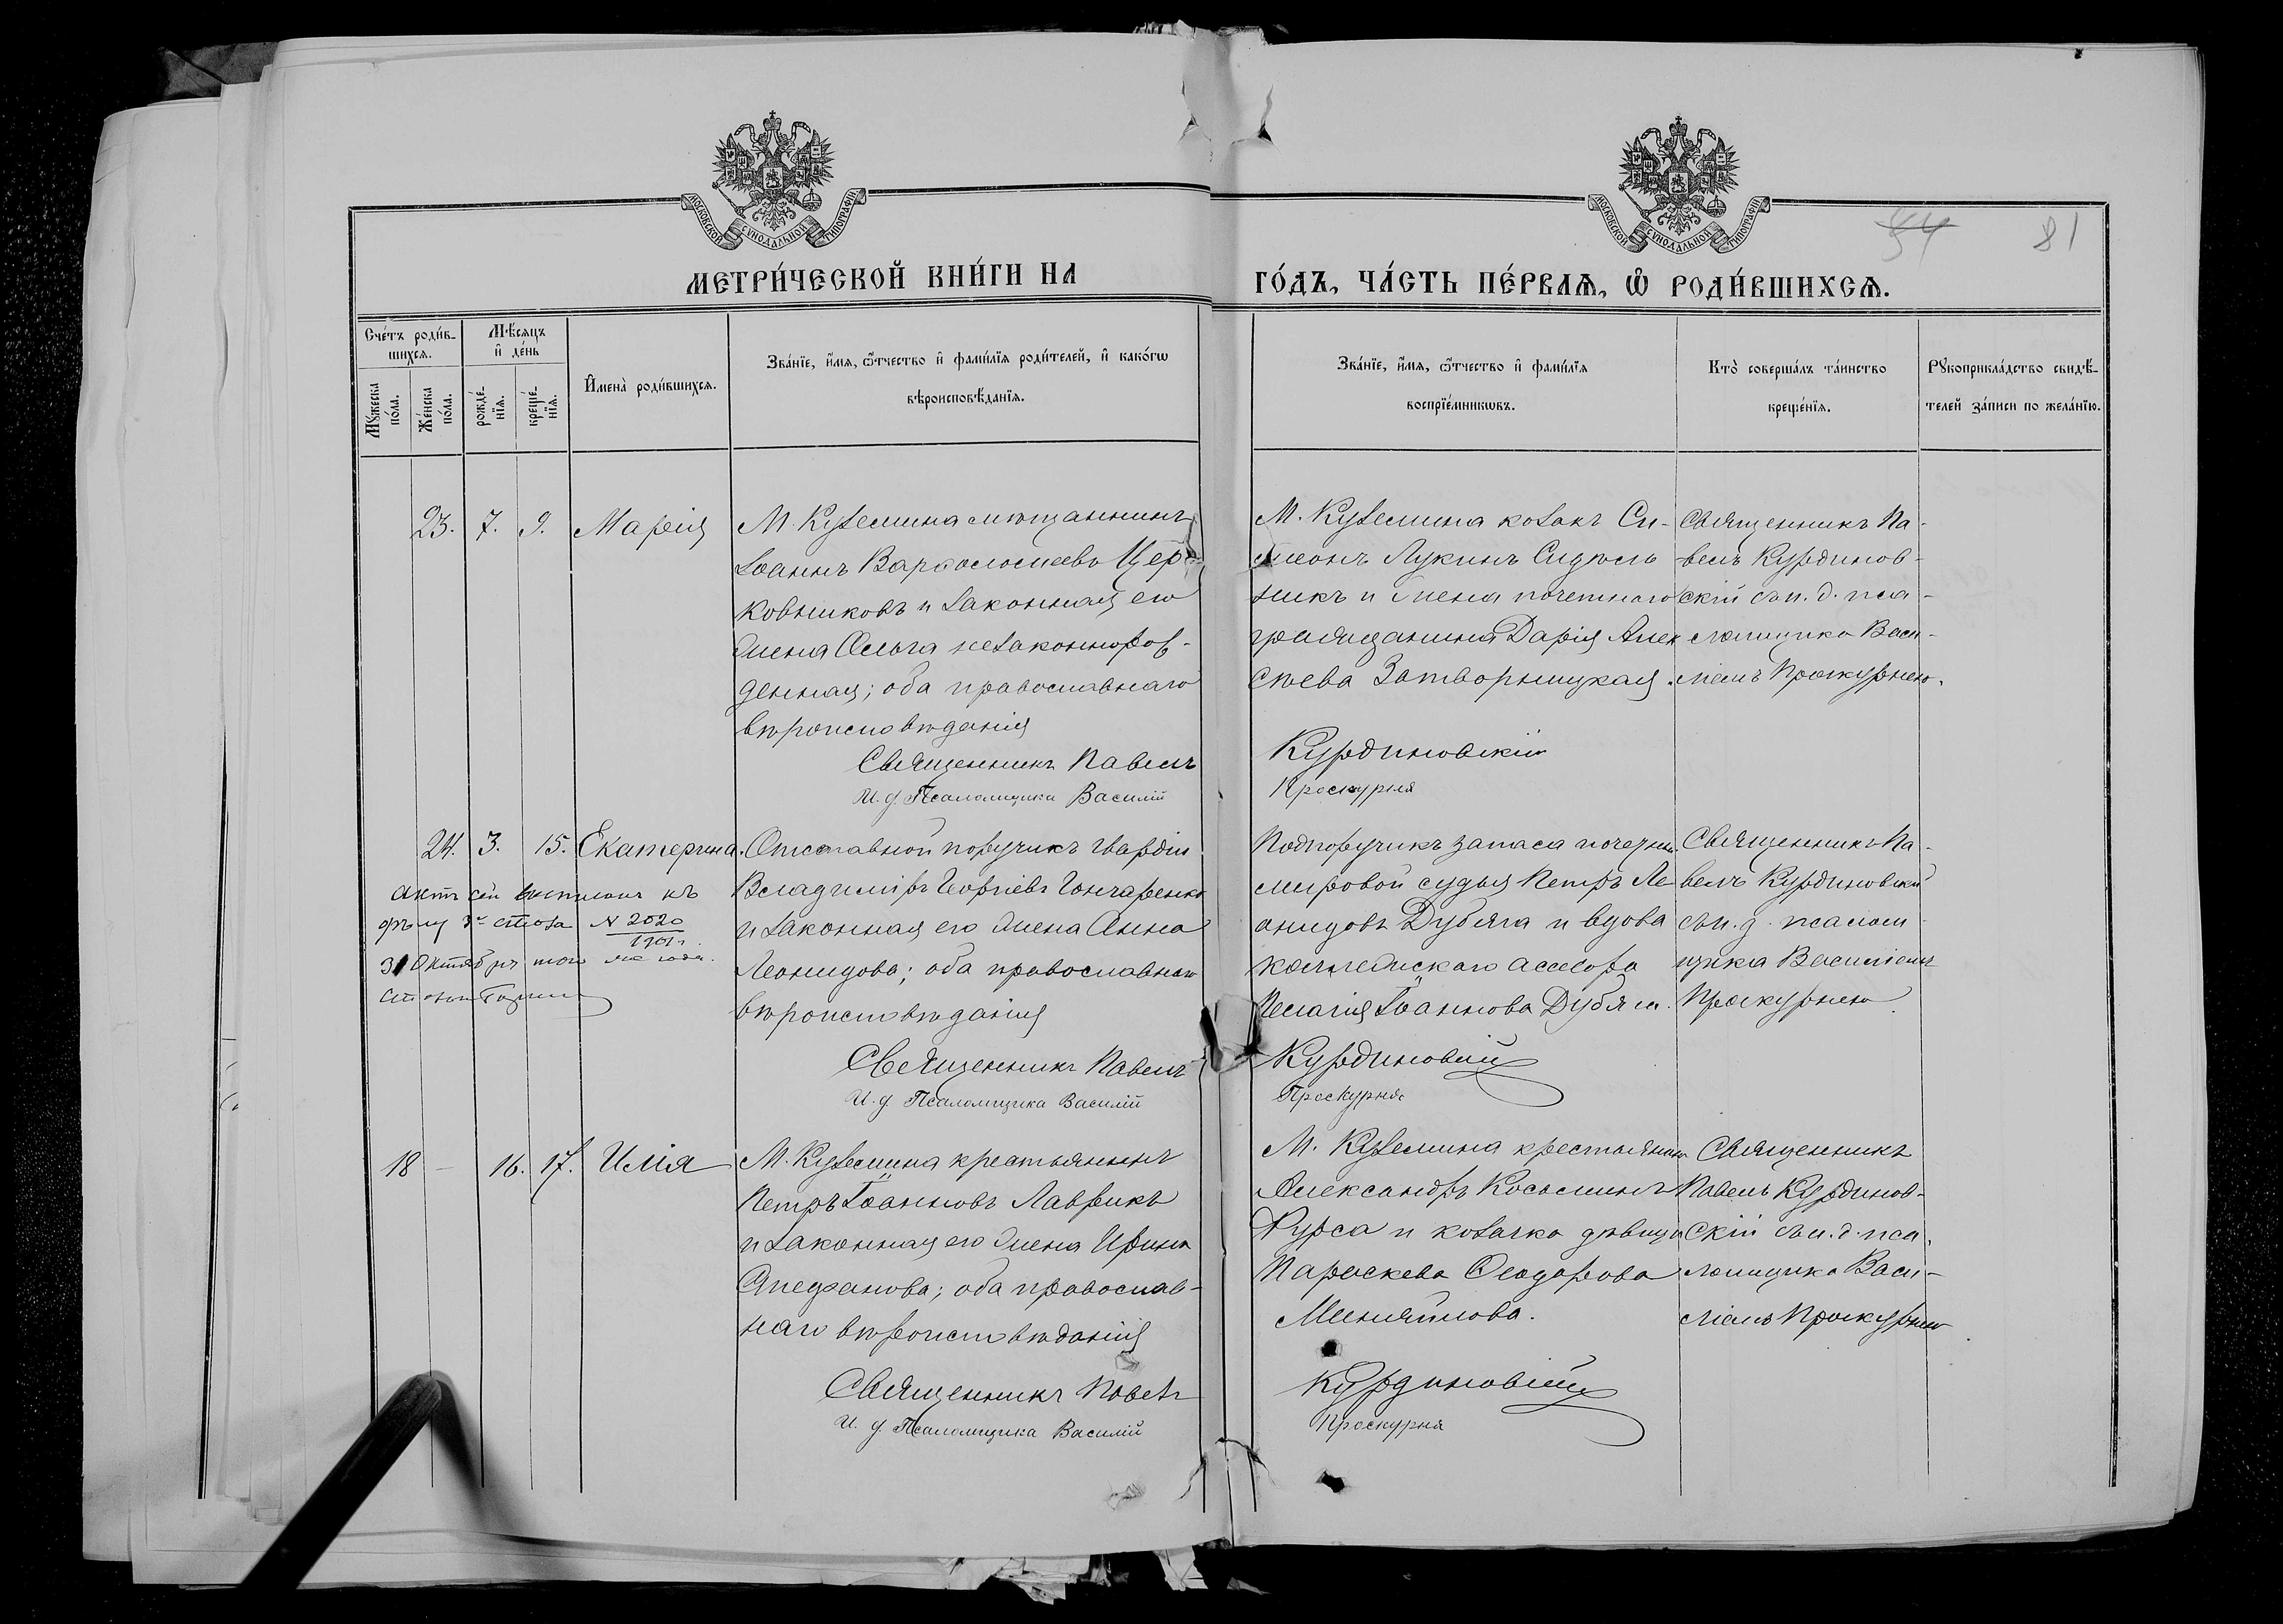 МОСКОВСКОЙ СѴНОДАЛЬНОЙ ТИПОГРАФІИ
МОСКОВСКОЙ СѴНОДАЛЬНОЙ ТИПОГРАФІИ
54
81
МЕТРИ́ЧЕСКОЙ КНИ́ГИ НА ГО́ДЪ, ЧА́СТЬ ПЕ́РВАѦ, Ѽ РОДИ́ВШИХСѦ.
Сче́тъ роди́в-
шихсѧ.
Мꙋ́жеска по́ла.
Же́нска по́ла.
Мѣ́сѧцъ
и҆ де́нь
рожде́-нїѧ.
креще́-нїѧ.
И҆мена̀ роди́вшихсѧ.
Зва́нїе, и҆́мѧ, ѻ҆́тчество и҆ фами́лїѧ роди́телей, и҆ како́гѡ
вѣроисповѣ́данїѧ.
Зва́нїе, и҆́мѧ, ѻ҆́тчество и҆ фами́лїѧ
воспрїе́мникѡвъ.
Кто̀ соверша́лъ та́инство
креще́нїѧ.
Рꙋкоприкла́дство свидѣ́-
телей за́писи по жела́нїю.
23. 7. 9. Марія
М. Куземина мѣщанинъ
Іоаннъ Варѳоломеевъ Цер-
ковниковъ и законная его
жена Ольга незаконнорож-
денная; оба православнаго
вѣроисповѣданія
Священникъ Павелъ
И. д. Псаломщика Василій
М. Куземина козакъ Си-
меонъ Лукинъ Сидѣль
никъ и жена почетнаго
гражданина Дарія Алек
сѣева Затворницкая.
Курдиновскій
Проскурня
Священникъ Па-
велъ Курдинов-
скій съ и. д. пса-
ломщика Васи-
ліемъ Проскурнею.
24. 3. 15. Екатерина.
Актъ сей выписанъ къ
дѣлу 3го стола № 2020
1901 г.
31 Октября того же года.
Отставной поручикъ гвардіи
Владиміръ Георгіевъ Гончаренко
и законная его жена Анна
Леонидова; оба православнаго
вѣроисповѣданія
Священникъ Павелъ
И. д. Псаломщика Василій
Подпоручикъ запаса почетн.
мировой судья Петръ Ле
онидовъ Дубяга и вдова
коллежскаго асесора
Пелагія Іоаннова Дубяга.
Курдиновскій
Проскурня
Священникъ Па-
велъ Курдиновскій
съ и. д. псалом-
щика Василіемъ
Проскурнею
18 — 16. 17. Илія
М. Куземина крестьянинъ
Петръ Іоанновъ Лаврикъ
и законная его жена Ирина
Стефанова; оба православ-
наго вѣроисповѣданія
Священникъ Павелъ
И. д. Псаломщика Василій
М. Куземина крестьянинъ
Александръ Косьминъ
Курса и козачка дѣвица
Параскева Ѳеодорова
Миняйлова.
Курдиновскій
Проскурня
Священникъ
Павелъ Курдинов-
скій съ и. д. пса-
ломщика Васи-
ліемъ Проскурнею